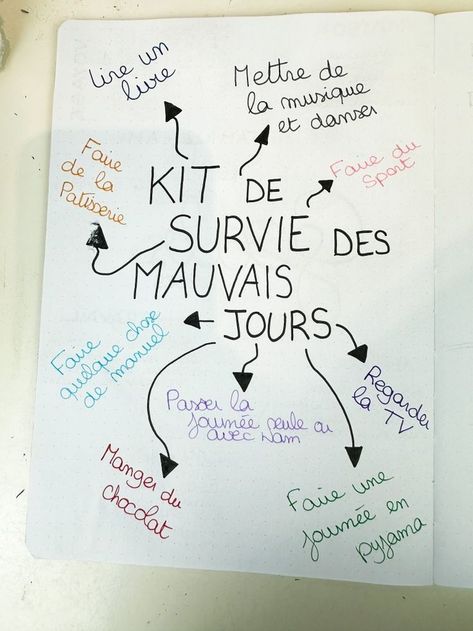 Lire un
livre
Mettre de
la musique
et danser
Faire de la
Patisserie
Faire du
sport
KIT DE
SURVIE DES
MAUVAIS
JOURS
Faire
quelque chose
de manuel
Passer la
journée seule ou
avec
Regarder
la TV
Manger du
chocolat
Faire une
journée en
pyjama